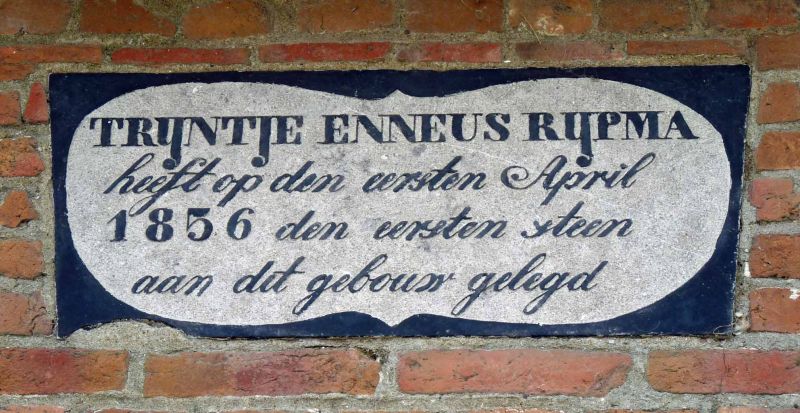 TRIJNTJE ENNEUS RIJPMA
heeft op den eersten April
1856 den eersten steen
aan dit gebouw gelegd